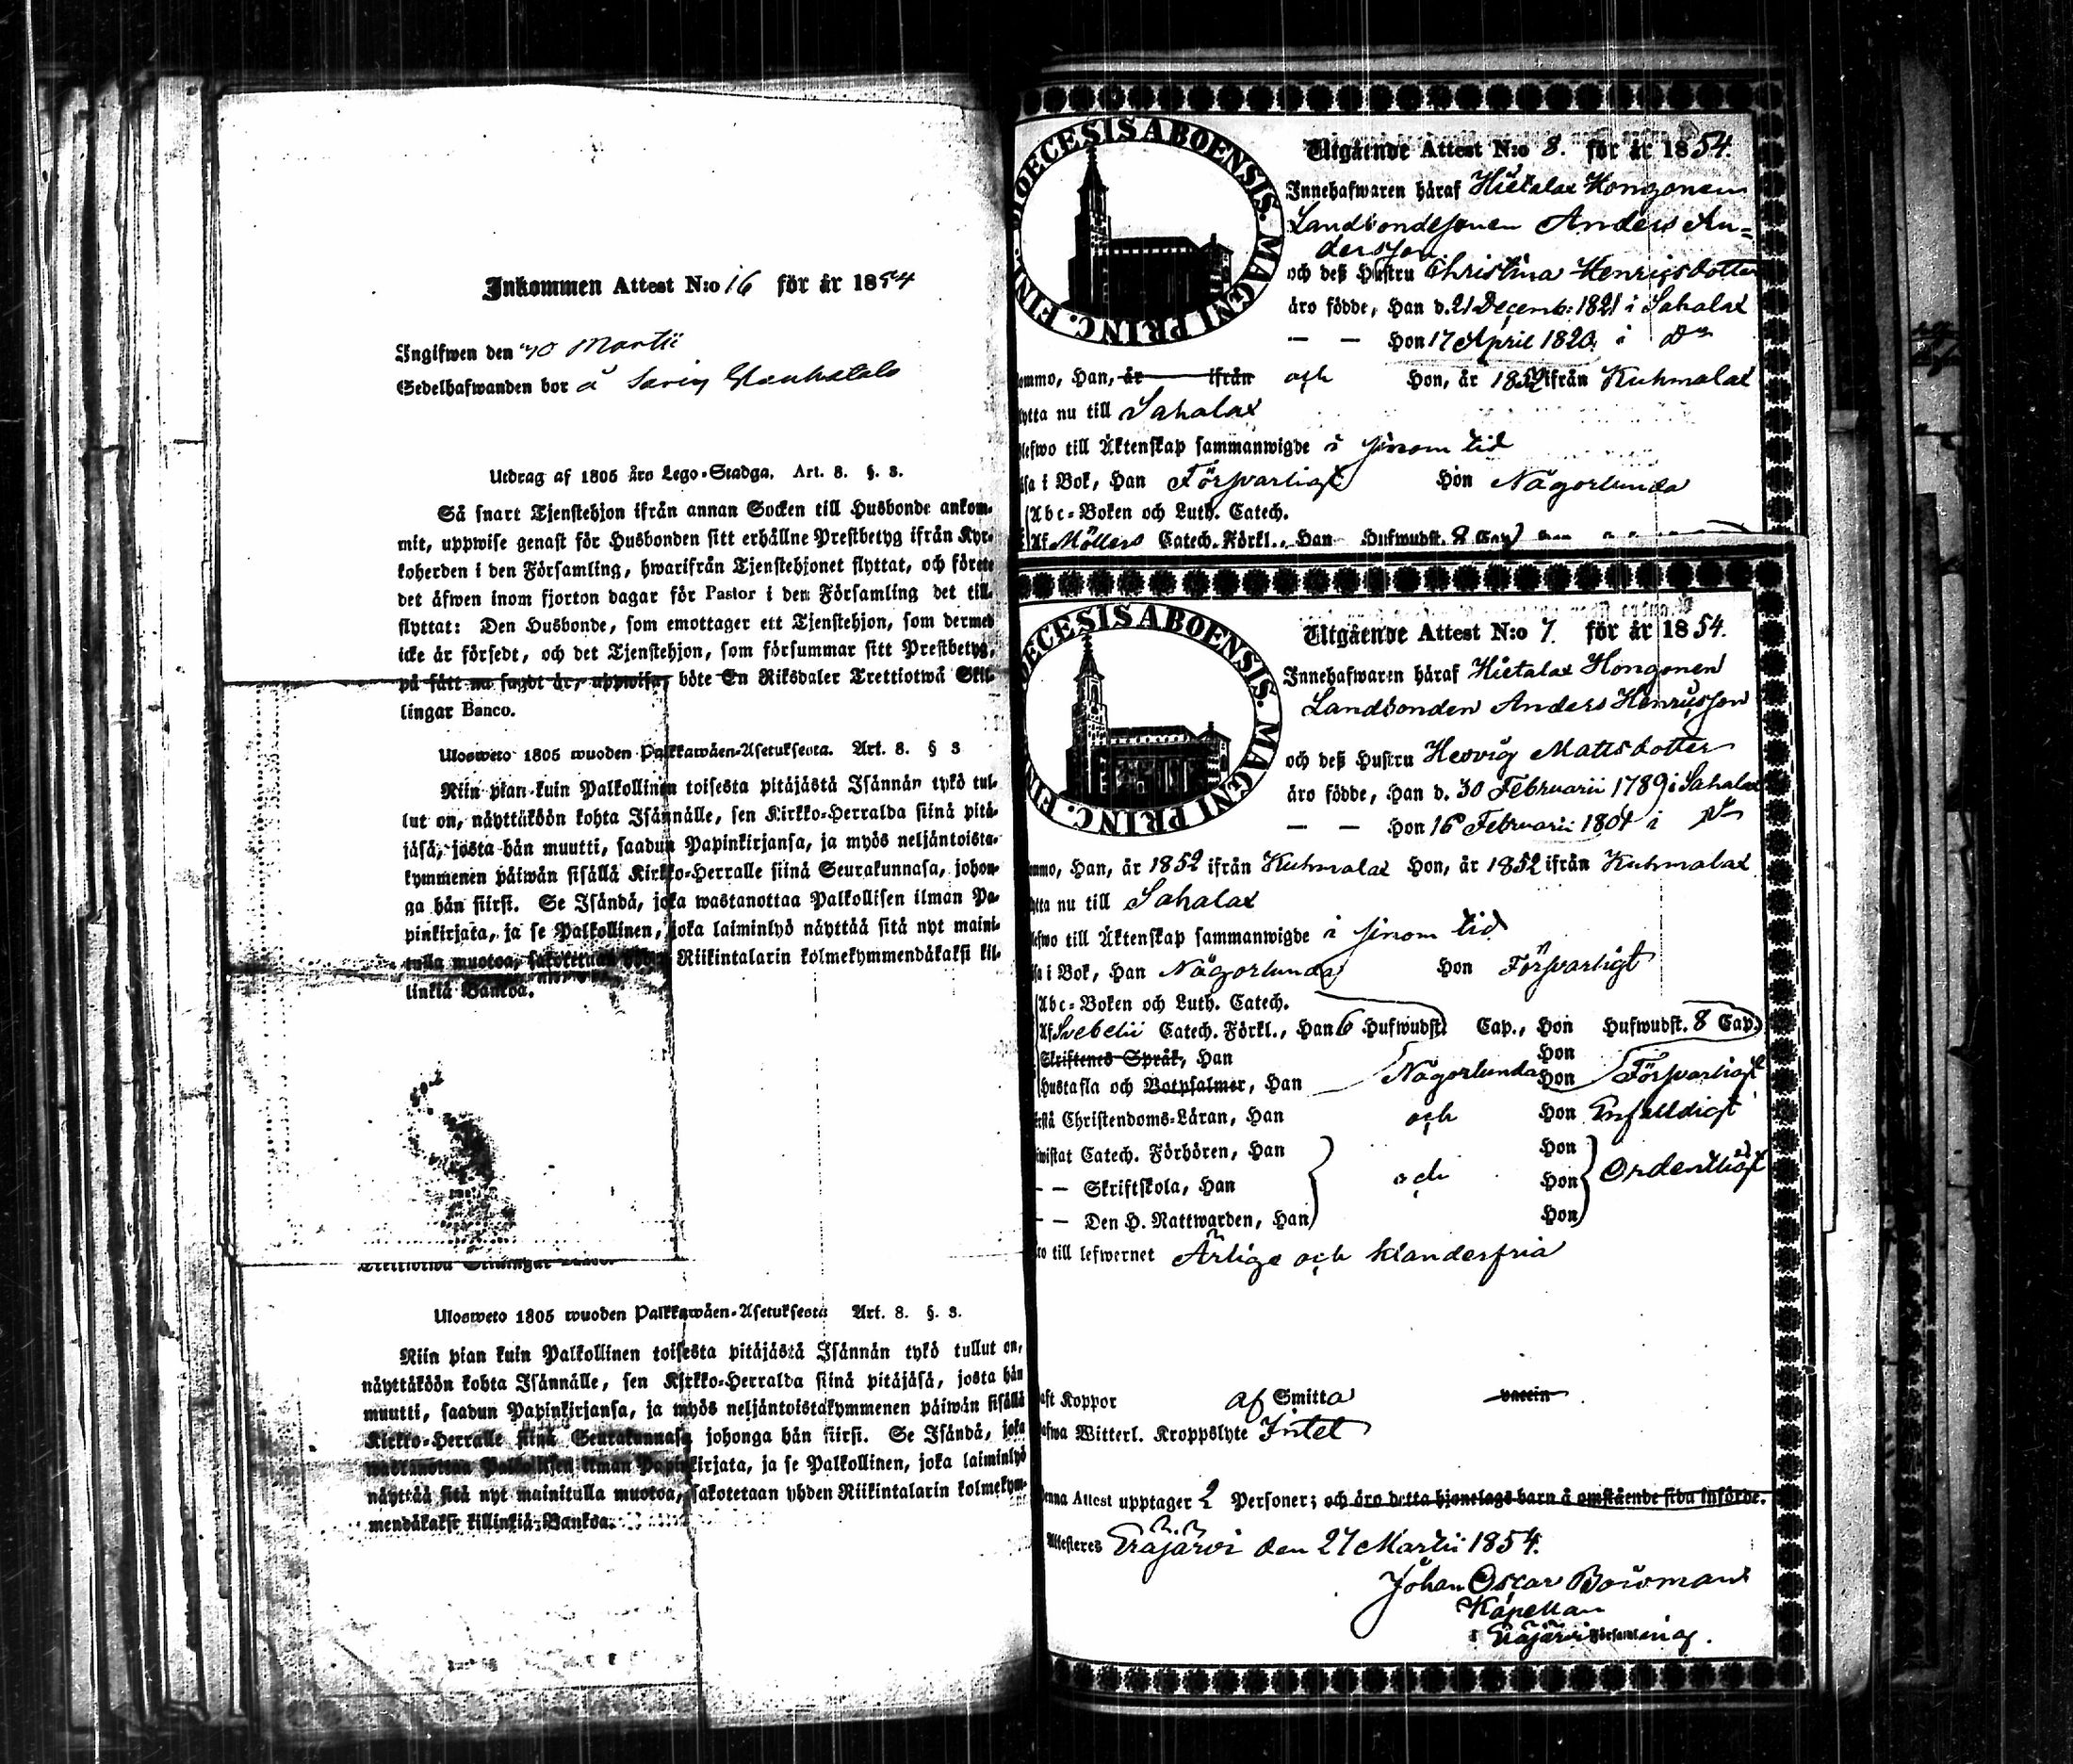 Inkommen Attest N:o 16 för år 1854
Ingifwen den 30 Martii
Sedelhafwanden bor å
Utdrag af 1805 års Lego-Stadga. Art. 8. §. 3.
Så snart Tjenstehjon ifrån annan Socken till Husbonde ankom-
mit, uppwise genast för Husbonden sitt erhållne Prestbetyg ifrån Kyr-
koherden i den Församling, hwarifrån Tjenstehjonet flyttat, och förete
det äfwen inom fjorton dagar för Pastor i den Församling det till-
flyttat: Den Husbonde, som emottager ett Tjenstehjon, som dermed
icke är försedt, och det Tjenstehjon, som försummar sitt Prestbetyg,
på sätt nu sagdt är, uppwisa, böte En Riksdaler Trettiotwå Skil-
lingar Banco.
Ulosweto 1805 wuoden Palkkawäen-Asetuksesta. Art. 8. § 3
Niin pian kuin Palkollinen toisesta pitäjästä Isännän tykö tul-
lut on, näyttäköön kohta Isännälle, sen Kirkko-Herralda siinä pitä-
jäsä, josta hän muutti, saadun Papinkirjansa, ja myös neljäntoista-
kymmenen päiwän sisällä Kirkko-Herralle siinä Seurakunnasa, johon-
ga hän siirsi. Se Isändä, joka wastanottaa Palkollisen ilman Pa-
pinkirjata, ja se Palkollinen, joka laiminlyö näyttää sitä nyt maini-
tulla muotoa, sakotetaan yhden Riikintalarin kolmekymmendäkaksi kil-
linkiä Bankoa.
Trettiotwå Skillingar Banco.
Ulosweto 1805 wuoden Palkkawäen-Asetuksesta Art. 8. §. 3.
Niin pian kuin Palkollinen toisesta pitäjästä Isännän tykö tullut on,
näyttäköön kohta Isännälle, sen Kirkko-Herralda siinä pitäjäsä, josta hän
muutti, saadun Papinkirjansa, ja myös neljäntoistakymmenen päiwän sisällä
Kirkko-Herralle siinä Seurakunnasa johonga hän siirsi. Se Isändä, joka
wastanottaa Palkollisen ilman Papinkirjata, ja se Palkollinen, joka laiminlyö
näyttää sitä nyt mainitulla muotoa, sakotetaan yhden Riikintalarin kolmekym-
mendäkaksi killinkiä Bankoa.
DIOECESIS ABOENSIS. MAGNI PRINC. FIN.
Utgående Attest N:o 8. för år 1854.
Innehafwaren häraf Hietalax Hongonen
Landbondesonen Anders An=
dersson
och deß Hustru Christina Henrigsdotter
äro födde, Han d. 21 Decemb: 1821 i Sahalax
— — Hon 17 April 1820. i Do
ommo, Han, är ifrån och Hon, år 1852 ifrån Kuhmalax
ytta nu till Sahalax
lefwo till Äktenskap sammanwigde i sinom tid
sa i Bok, Han Försvarligt Hon Någorlunda
Abc-Boken och Luth. Catech.
Af Möllers Catech. Förkl., Han Hufwudst. 8 Cap
DIOECESIS ABOENSIS. MAGNI PRINC. FIN
Utgående Attest N:o 7. för år 1854.
Innehafwaren häraf Hietalax Hongonen
Landbonden Anders Henricsson
och deß Hustru Hedvig Mattsdotter
äro födde, Han d. 30 Februarii 1789 i Sahalax
— — Hon 16 Februarii 1804 i Do
ommo, Han, år 1852 ifrån Kuhmalax Hon, år 1852 ifrån Kuhmalax
ytta nu till Sahalax
lefwo till Äktenskap sammanwigde i sinom tid
sa i Bok, Han Någorlunda Hon Försvarligt
Abc-Boken och Luth. Catech.
Af Svebelii Catech. Förkl., Han 6 Hufwudst. Cap., Hon Hufwudst. 8 Cap.
Skriftenes Språk, Han Hon
Hustafla och Botpsalmer, Han Någorlunda Hon Försvarligt
rstå Christendoms-Läran, Han och Hon Enfalldigt
wistat Catech. Förhören, Han Hon
— — Skriftskola, Han och Hon Ordentligt
— — Den H. Nattwarden, Han Hon
ro till lefwernet Ärlige och klanderfria
aft Koppor af Smitta vaccin
afwa Witterl. Kroppslyte Intet
enna Attest upptager 2 Personer; och äro detta hjonelags barn å omstående sida införde.
Attesteres Eräjärvi den 27 Martii 1854.
Johan Oscar Bouvman
Kapellan
i Eräjärvi Församling.